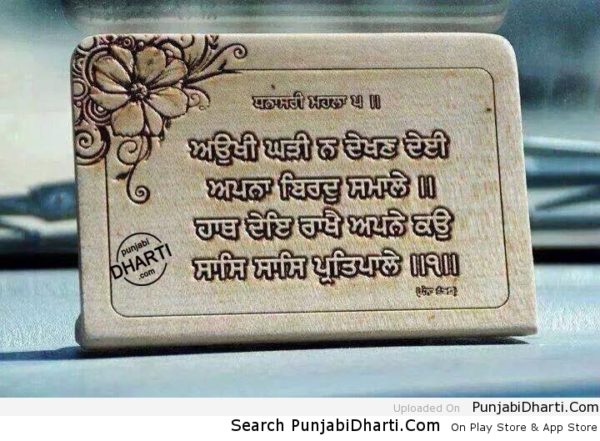 ਧਨਾਸਰੀ ਮਹਲਾ ੫ ॥
ਅਉਖੀ ਘੜੀ ਨ ਦੇਖਣ ਦੇਈ
ਅਪਨਾ ਬਿਰਦੁ ਸਮਾਲੇ ॥
ਹਾਥ ਦੇਇ ਰਾਖੈ ਅਪਨੇ ਕਉ
ਸਾਸਿ ਸਾਸਿ ਪ੍ਰਤਿਪਾਲੇ ॥੧॥
punjabi
DHARTI
.com
Uploaded On PunjabiDharti.Com
Search PunjabiDharti.Com On Play Store & App Store